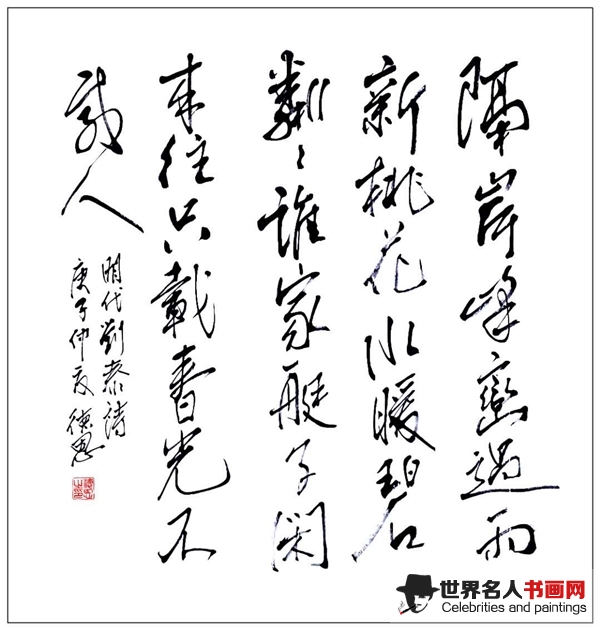 隔岸峰巒過雨
新桃花水暖碧
粼々誰家艇子閑
来往只載春光不
載人
明代劉泰詩
庚子仲夏德
世界名人书画网
Celebrities and paintings